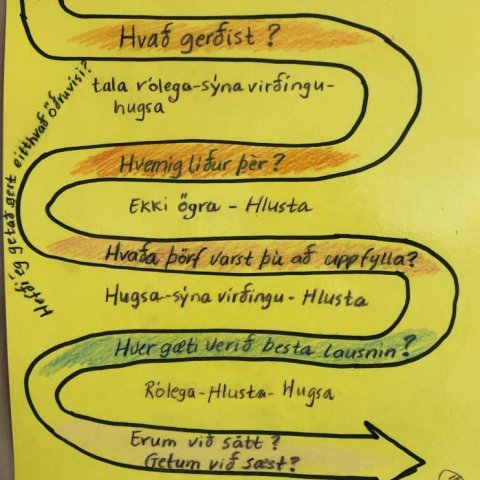 Hvað gerðist?
tala rólega-sýna virðingu-
hugsa
Hefði ég getað gert eitthvað öðruvísi?
Hvernig líður þèr?
Ekki ögra - Hlusta
Hvaða þörf varst þù að uppfylla?
Hugsa-sýna virðingu - Hlusta
Hver gæti verið besta lausnin?
Rólega-Hlusta-Hugsa
Erum við sátt?
Getum við sæst?